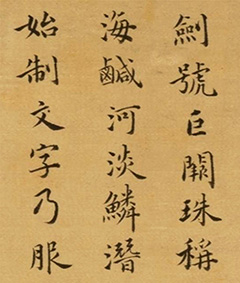 劍號巨闕珠稱
海鹹河淡鱗潛
始制文字乃服